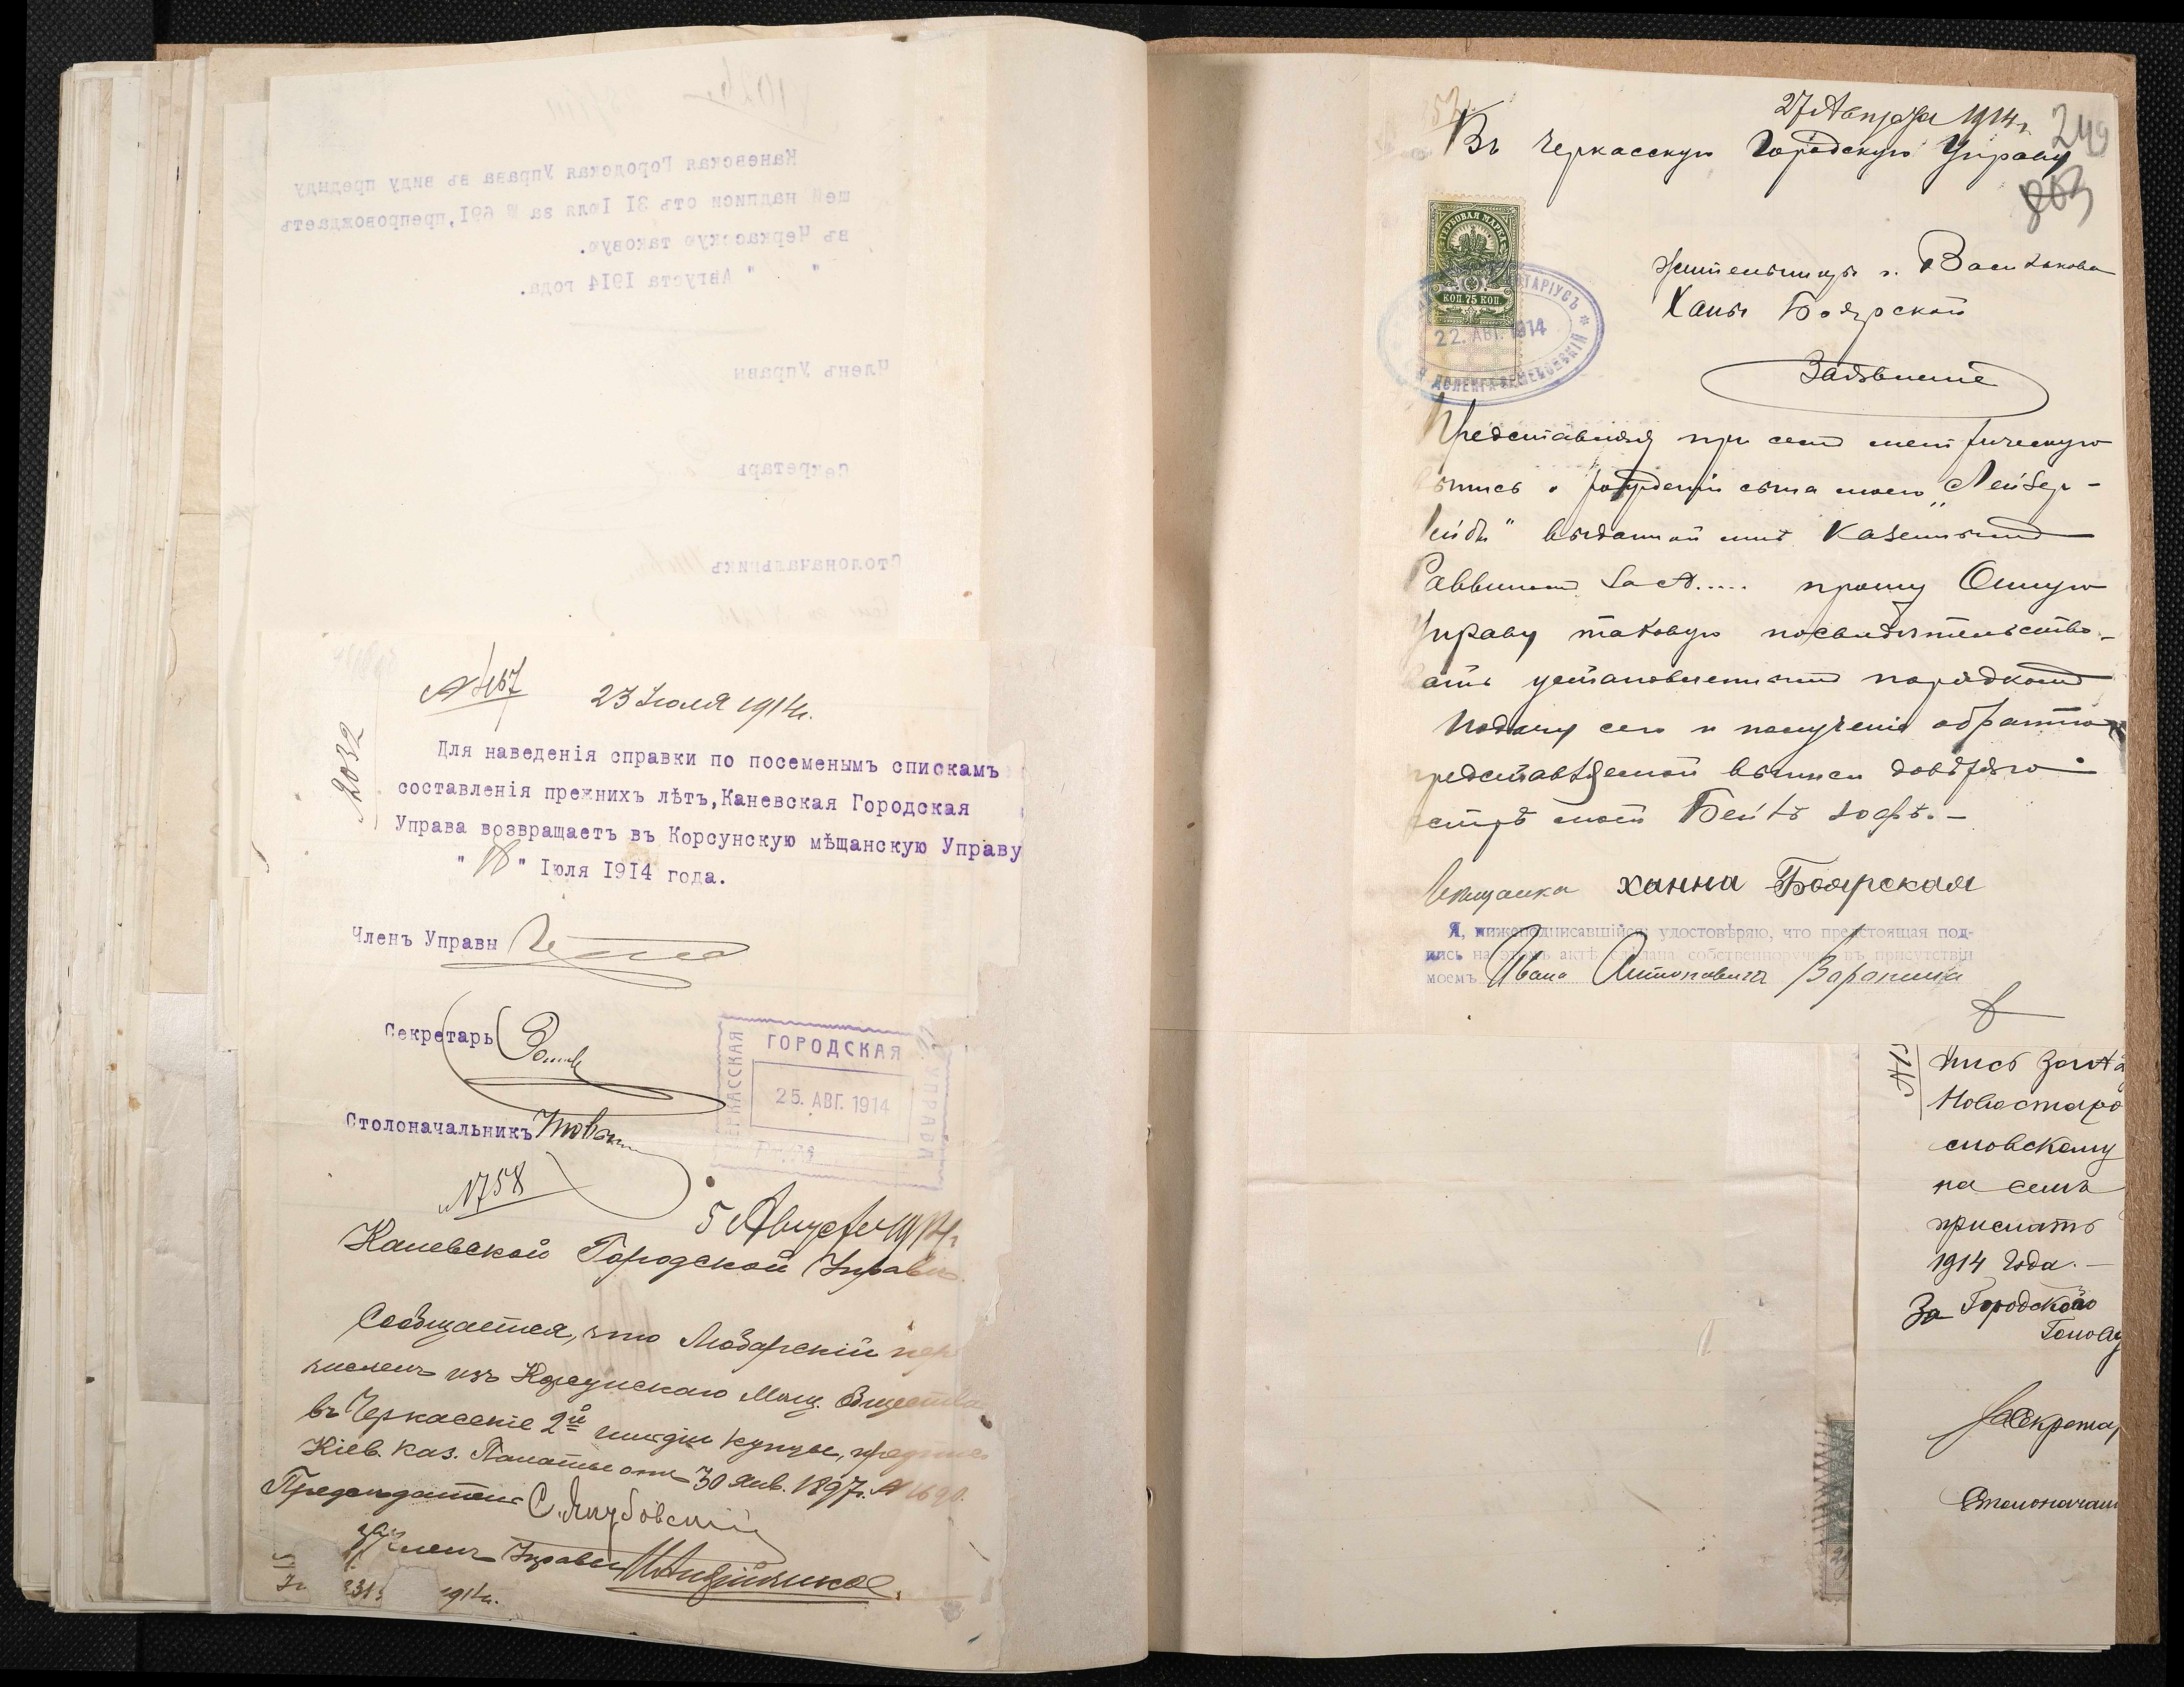 Каневская Городская Управа въ виду предыду
щей надписи отъ 31 Іюля за № 691, препровождаетъ
въ Черкасскую таковую.
" " Августа 1914 года.
Членъ Управы
Секретарь
Столоначальникъ
2032
23 Іюля 1914 г.
Для наведенія справки по посеменымъ спискамъ
составленія прежнихъ лѣтъ, Каневская Городская
Управа возвращаетъ въ Корсунскую мѣщанскую Управу
" 18 " Іюля 1914 года.
Членъ Управы
Секретарь
Столоначальникъ
ГОРОДСКАЯ
УПРАВА
25. АВГ. 1914
№758
5 Августа 1914 г.
Каневской Городской Управѣ
Сообщается, что
численъ изъ Корсунскаго Мѣщ. Общества
въ Черкасскіе 2й гильдіи купцы,
Кіев. Каз. Палаты отъ 30 Янв. 1897 г. №
Предсѣдатель С. Якубовскій
Членъ Управы
1914 г.
27 Августа 1914 г.
249
Въ Черкасскую Городскую Управу
863
ГЕРБОВАЯ МАРКА
КОП. 75 КОП.
22. АВГ. 1914
Жительницы г. Василькова
Ханы Боярской
Заявленіе
Представляя при семъ метрическую
выпись о рожденіи сына моего „Лейзер-
Лейбы" выданной мнѣ Казеннымъ
Раввиномъ за №..... прошу Оную
Управу таковую посвидѣтельство-
вать установленнымъ порядкомъ
Подачу сего и полученіе обратно
представляемой выписи довѣряю
сестрѣ моей Бейлѣ
Мѣщанка Ханна Боярская
Я, нижеподписавшійся, удостовѣряю, что предстоящая под-
пись на этомъ актѣ сдѣлана собственноручно въ присутствіи
моемъ Ивана Антоновича
пись за №
Новостаро
словскому
на семъ
прислать
1914 года.-
За Городского
Голову
Секретар
Столоначаль